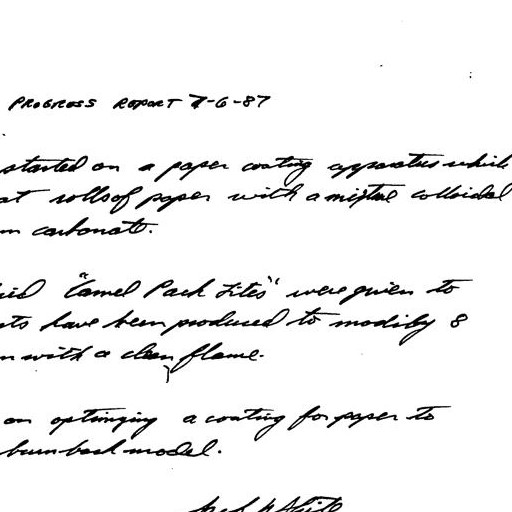 PROGRESS REPORT 7-6-87
started on a paper coating apparatus which
at rolls of paper with a mixture colloidal
carbonate.
"Camel Pack Lites" were given to
have been produced to modify 8
with a clean flame.
on optimizing a coating for paper to
burn back model.